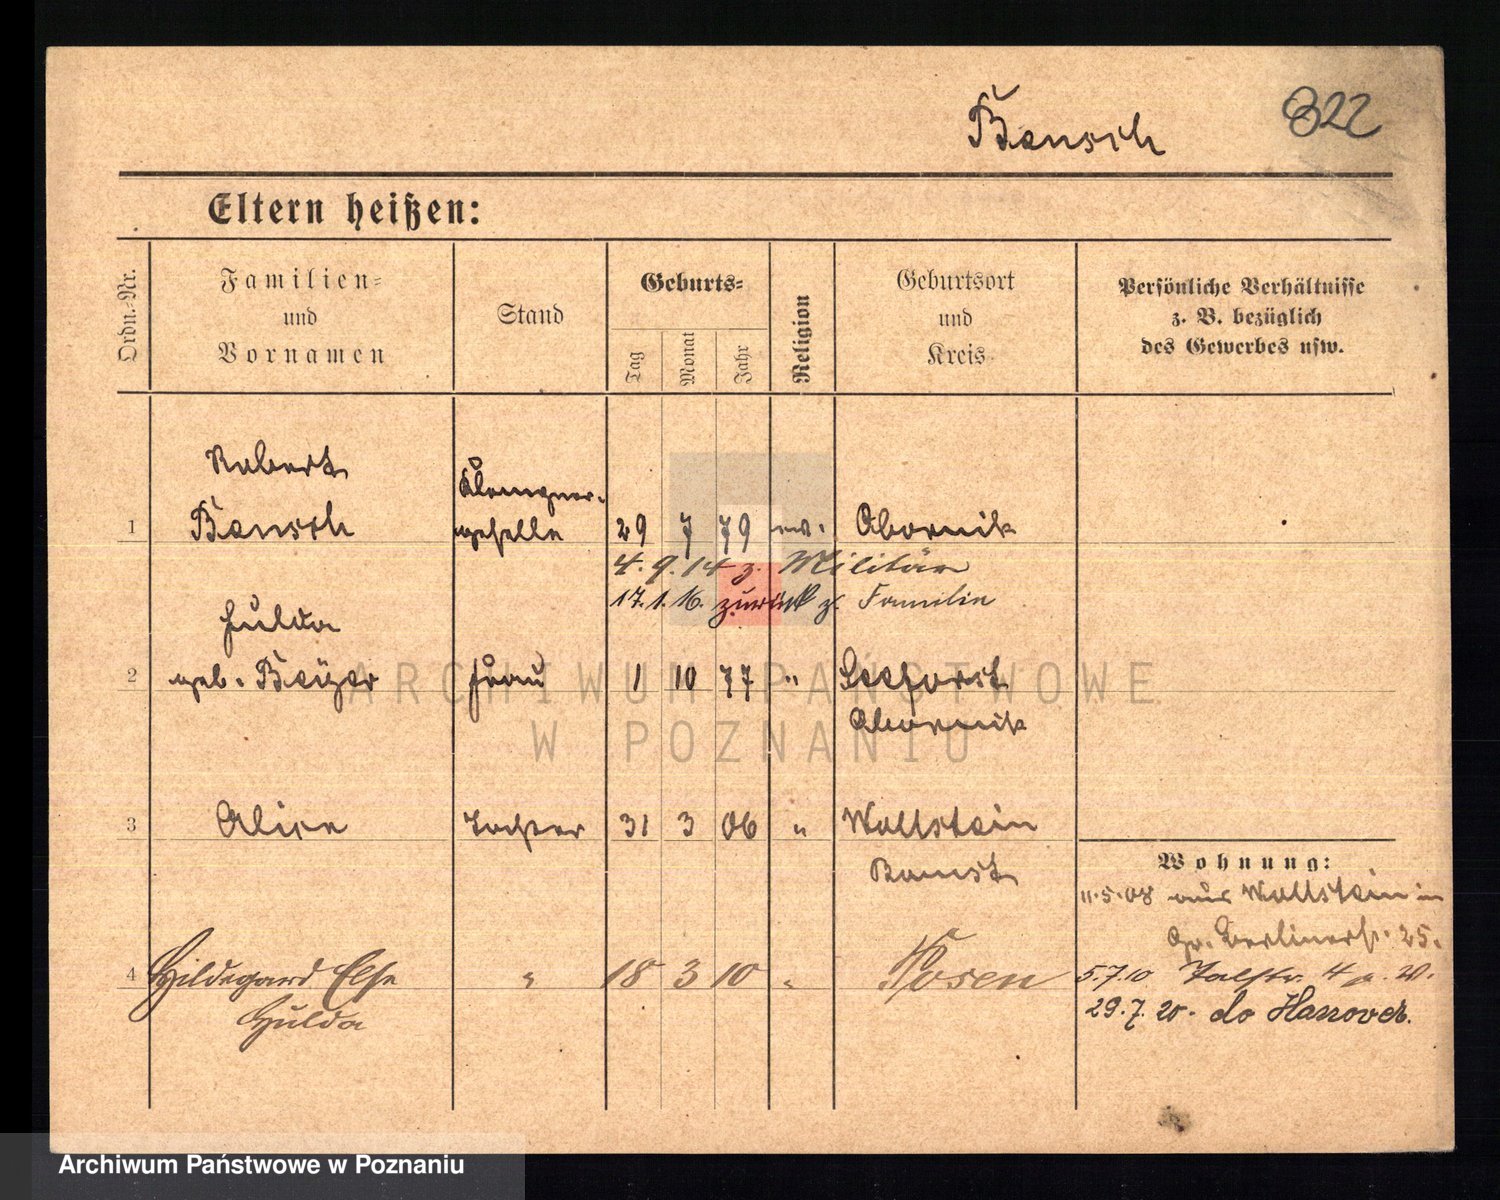 Bensch
822
Eltern heißen:
Ordn.-Nr.
Familien-
und
Vornamen
Stand
Geburts-
Tag
Monat
Jahr
Religion
Geburtsort
und
Kreis
Persönliche Verhältnisse
z. B. bezüglich
des Gewerbes usw.
Robert
Klempner-
1 Bensch geselle 29 7 79 ev. Obornik
4. 9. 14 z. Militär
17. 1. 16. zurück z. Familie
Hulda
2 geb. Frau 1 10 77 " Seeforst
Obornik
3 Alice Tochter 31 3 06 " Wollstein
Bomst
Wohnung:
11.5.08 aus Wollstein in
Berlinerstr. 25.
4 Hildegard Else " 18 3 10 " Posen 5.7.10 Talstr. 4
Hulda
29. 7. 20. do Hannover.
ARCHIWUM PAŃSTWOWE
W POZNANIU
Archiwum Państwowe w Poznaniu